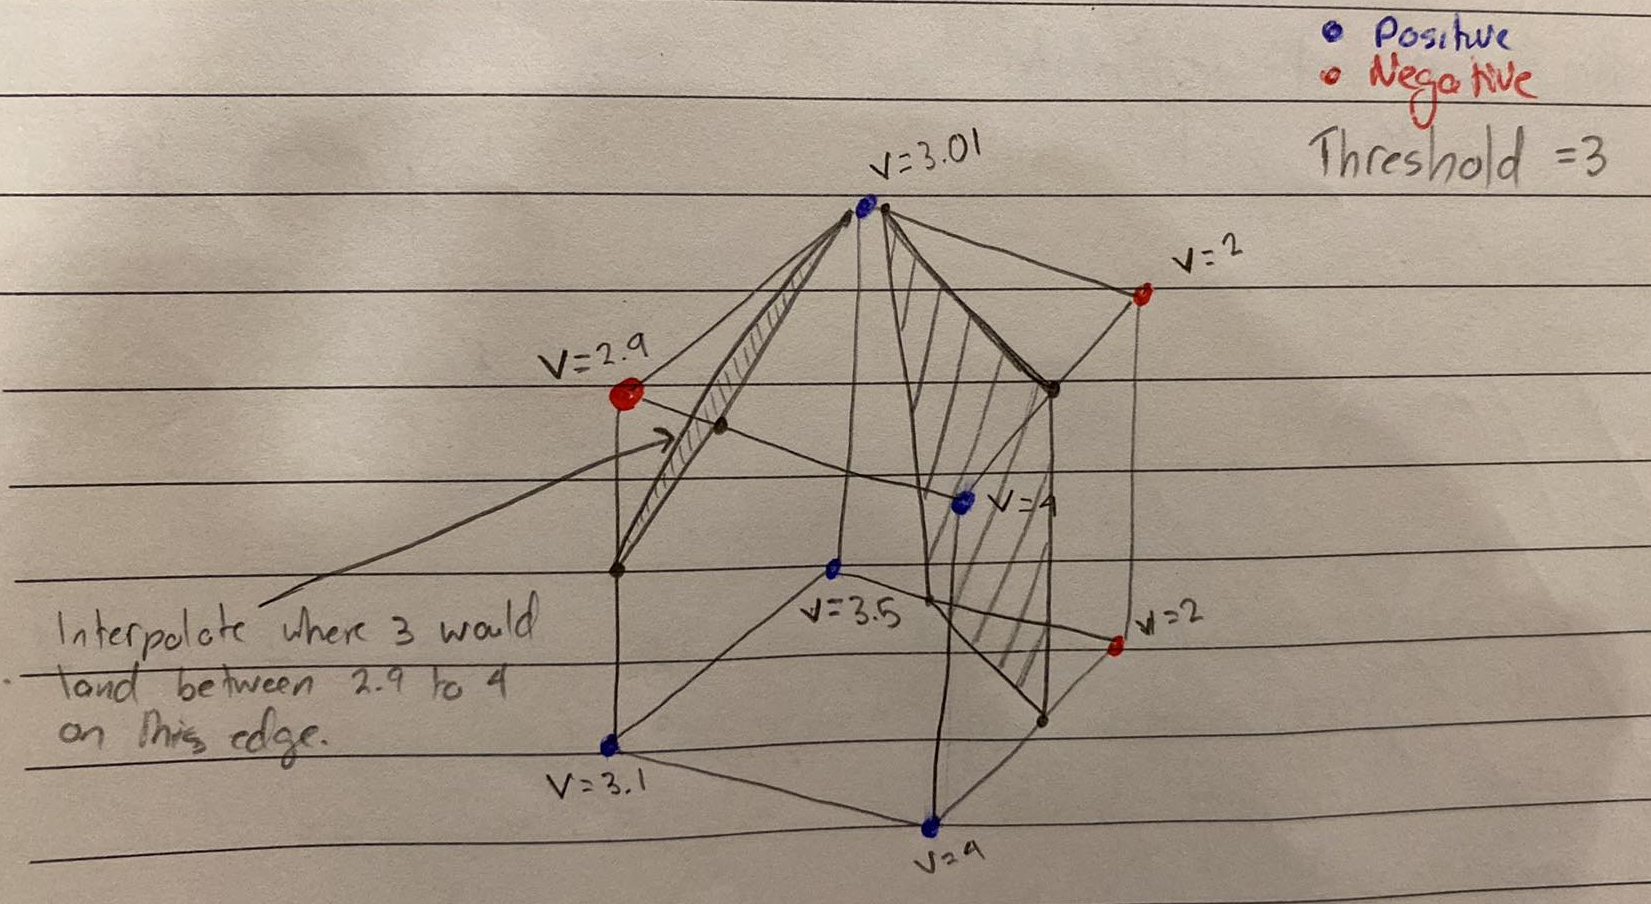 Positive
Negative
Threshold =3
V=3.01
V=2
V=2.9
V=4
V=3.5
V=2
Interpolate where 3 would
land between 2.9 to 4
on this edge.
V=3.1
V=4